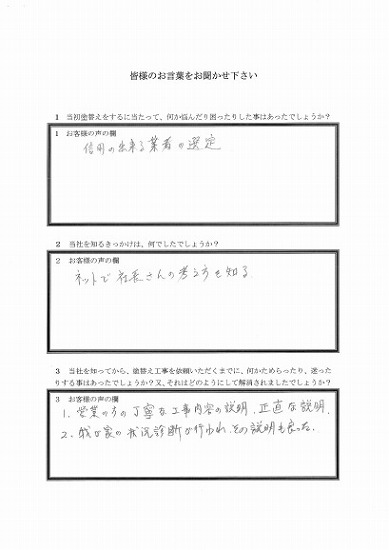 皆様のお言葉をお聞かせ下さい
1 当初塗替えをするに当たって、何か悩んだり困ったりした事はあったでしょうか?
1 お客様の声の欄
信用の出来る業者の選定
2 当社を知るきっかけは、何でしたでしょうか?
2 お客様の声の欄
ネットで社長さんの考え方を知る
3 当社を知ってから、塗替え工事を依頼いただくまでに、何かためらったり、迷った
りする事はあったでしょうか?又、それはどのようにして解消されましたでしょうか?
3 お客様の声の欄
1. 営業の方の丁寧な工事内容の説明、正直な説明。
2. 我が家の状況診断が行われ、その説明も良った。